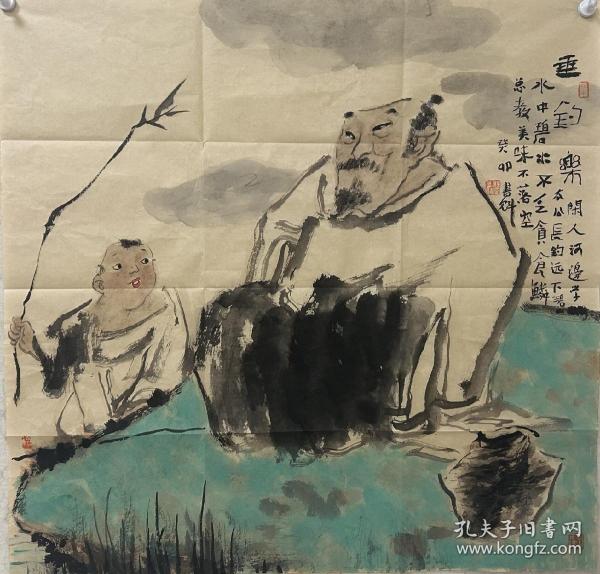 垂釣樂
閑人河邊学
太公長钓远下碧
水中碧水不乏貪食鱗
总教美味不落空
癸卯
孔夫子旧书网
www.kongfz.com